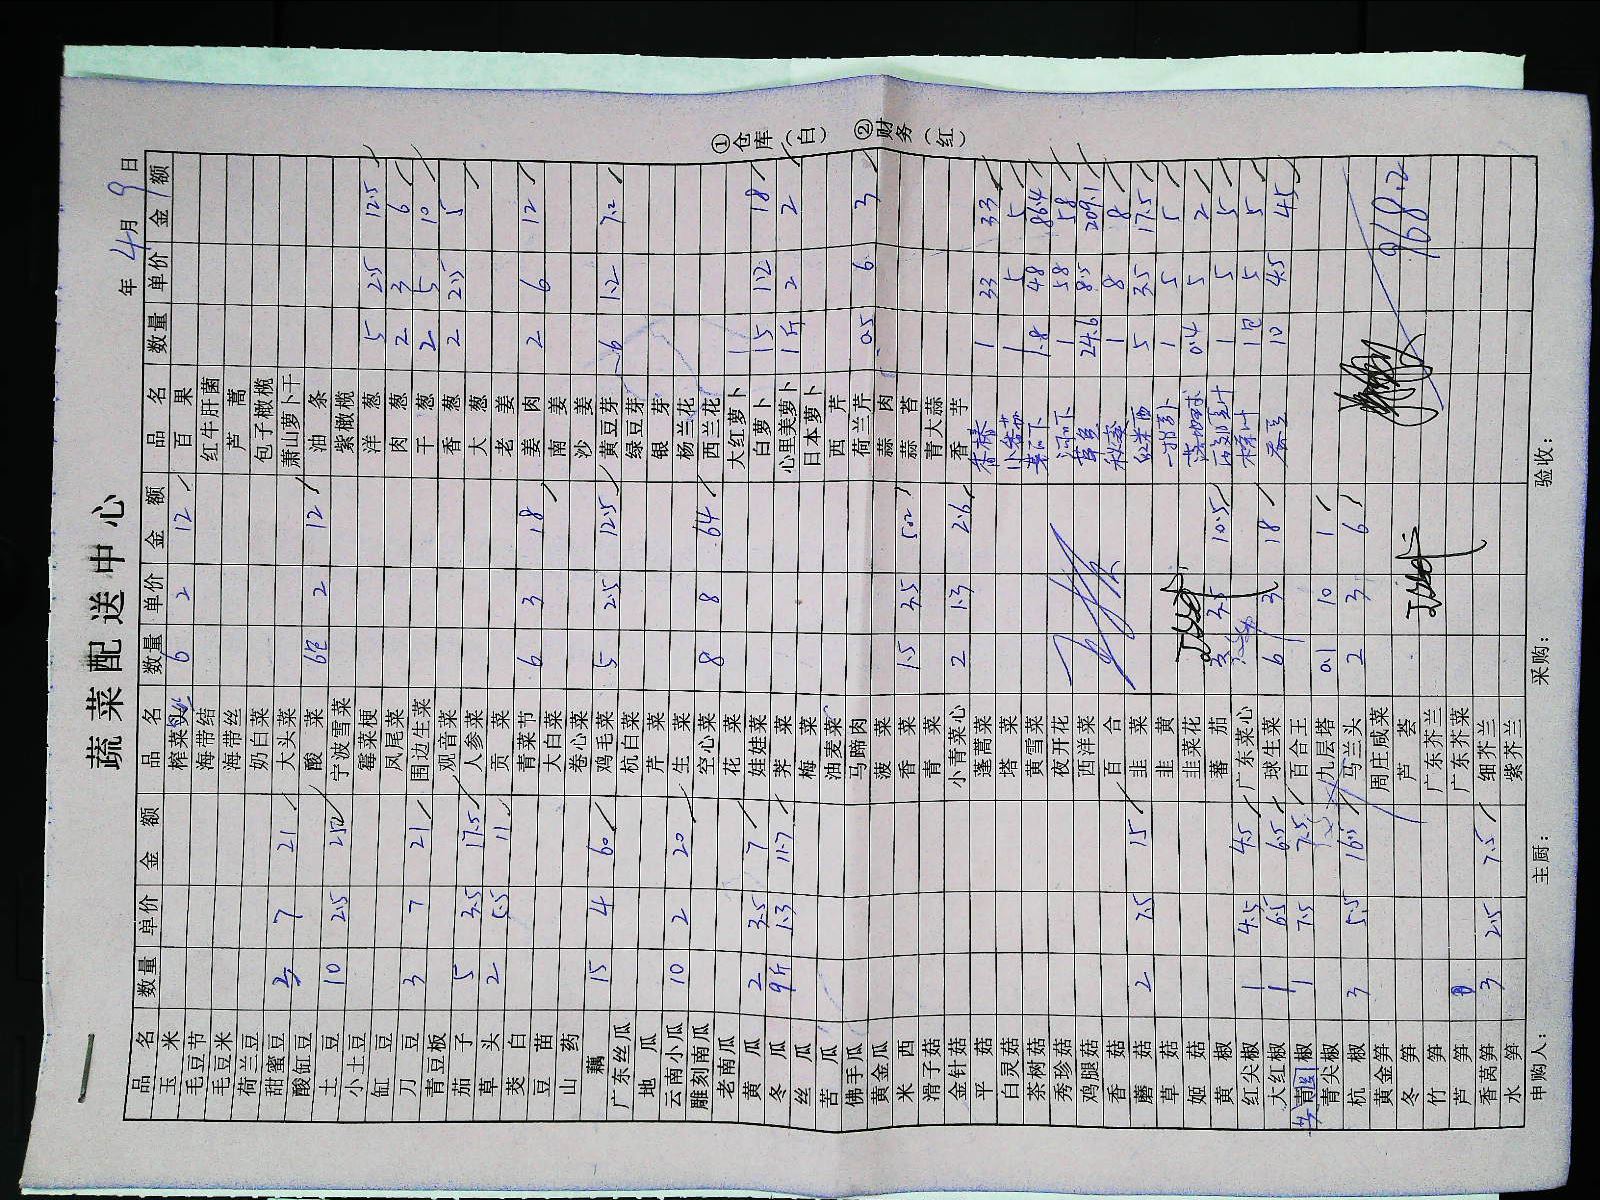 蔬菜配送中心
年 4月 9日
品名 数量 单价 金额 品名 数量 单价 金额 品名 数量 单价 金额
玉米 榨菜头 6 2 12 百果
毛豆节 海带结 红牛肝菌
毛豆米 海带丝 芦蒿
荷兰豆 奶白菜 包子橄榄
甜蜜豆 3 7 21 大头菜 萧山萝卜干
酸缸豆 酸菜 6包 2 12 油条
土豆 10 2.5 25 宁波雪菜 紫橄榄
小土豆 霉菜梗 洋葱 5 2.5 12.5
缸豆 凤尾菜 肉葱 2 3 6
刀豆 3 7 21 围边生菜 干葱 2 5 10
青豆板 观音菜 香葱 2 2.5 5
茄子 5 3.5 17.5 人参菜 大葱
草头 2 5.5 11 贡菜 老姜
茭白 青菜节 6 3 18 姜肉 2 6 12
豆苗 大白菜 南姜
山药 卷心菜 沙姜
藕 15 4 60 鸡毛菜 5 2.5 12.5 黄豆芽 6 1.2 7.2
广东丝瓜 杭白菜 绿豆芽
地瓜 芹菜 银芽
云南小瓜 10 2 20 生菜 杨兰花
雕刻南瓜 空心菜 8 8 64 西兰花
老南瓜 花菜 大红萝卜
黄瓜 2 3.5 7 娃娃菜 白萝卜 15 1.2 18
冬瓜 9斤 1.3 11.7 荠菜 心里美萝卜 1斤 2 2
丝瓜 梅菜 日本萝卜
苦瓜 油麦菜 西芹
佛手瓜 马蹄肉 荷兰芹 0.5 6 3
黄金瓜 菠菜 蒜肉
米西 香菜 1.5 3.5 蒜苔
滑子菇 青菜 青大蒜
金针菇 小青菜心 2 1.3 2.6 香芋
平菇 蓬蒿菜 香椿 1 33 33
白灵菇 塔菜 1 5 5
茶树菇 黄雪菜 1.8 48 86.4
秀珍菇 夜开花 1 58 58
鸡腿菇 西洋菜 24.6 8.5 209.1
香菇 百合 1 8 8
蘑菇 2 7.5 15 韭菜 5 3.5 17.5
草菇 韭黄 1 5 5
姬菇 韭菜花 0.4 5 2
黄椒 蕃茄 3 3.5 10.5 1 5 5
红尖椒 1 4.5 4.5 广东菜心 1包 5 5
大红椒 1 6.5 6.5 球生菜 6 3 18 10 4.5 45
青圆椒 1 7.5 7.5 百合王
青尖椒 九层塔 0.1 10 1
杭椒 3 5.5 16.5 马兰头 2 3 6
黄金笋 周庄咸菜 968.2
冬笋 芦荟
竹笋 广东芥兰
芦笋 广东芥菜
香莴笋 3 2.5 7.5 细芥兰
水笋 紫芥兰
申购人： 主厨： 采购： 验收：
①仓库（白） ②财务（红）